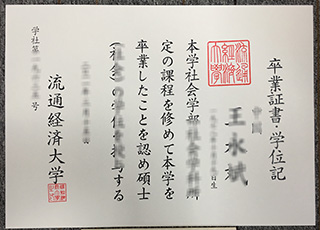 卒業証書・学位記
中国
王永斌
日生
本学社会学部社会学科所
定の課程を修めて本学を
卒業したことを認め碩士
(社会)の学位を授与する
流通経済大学
学社第 号
流通経済大学